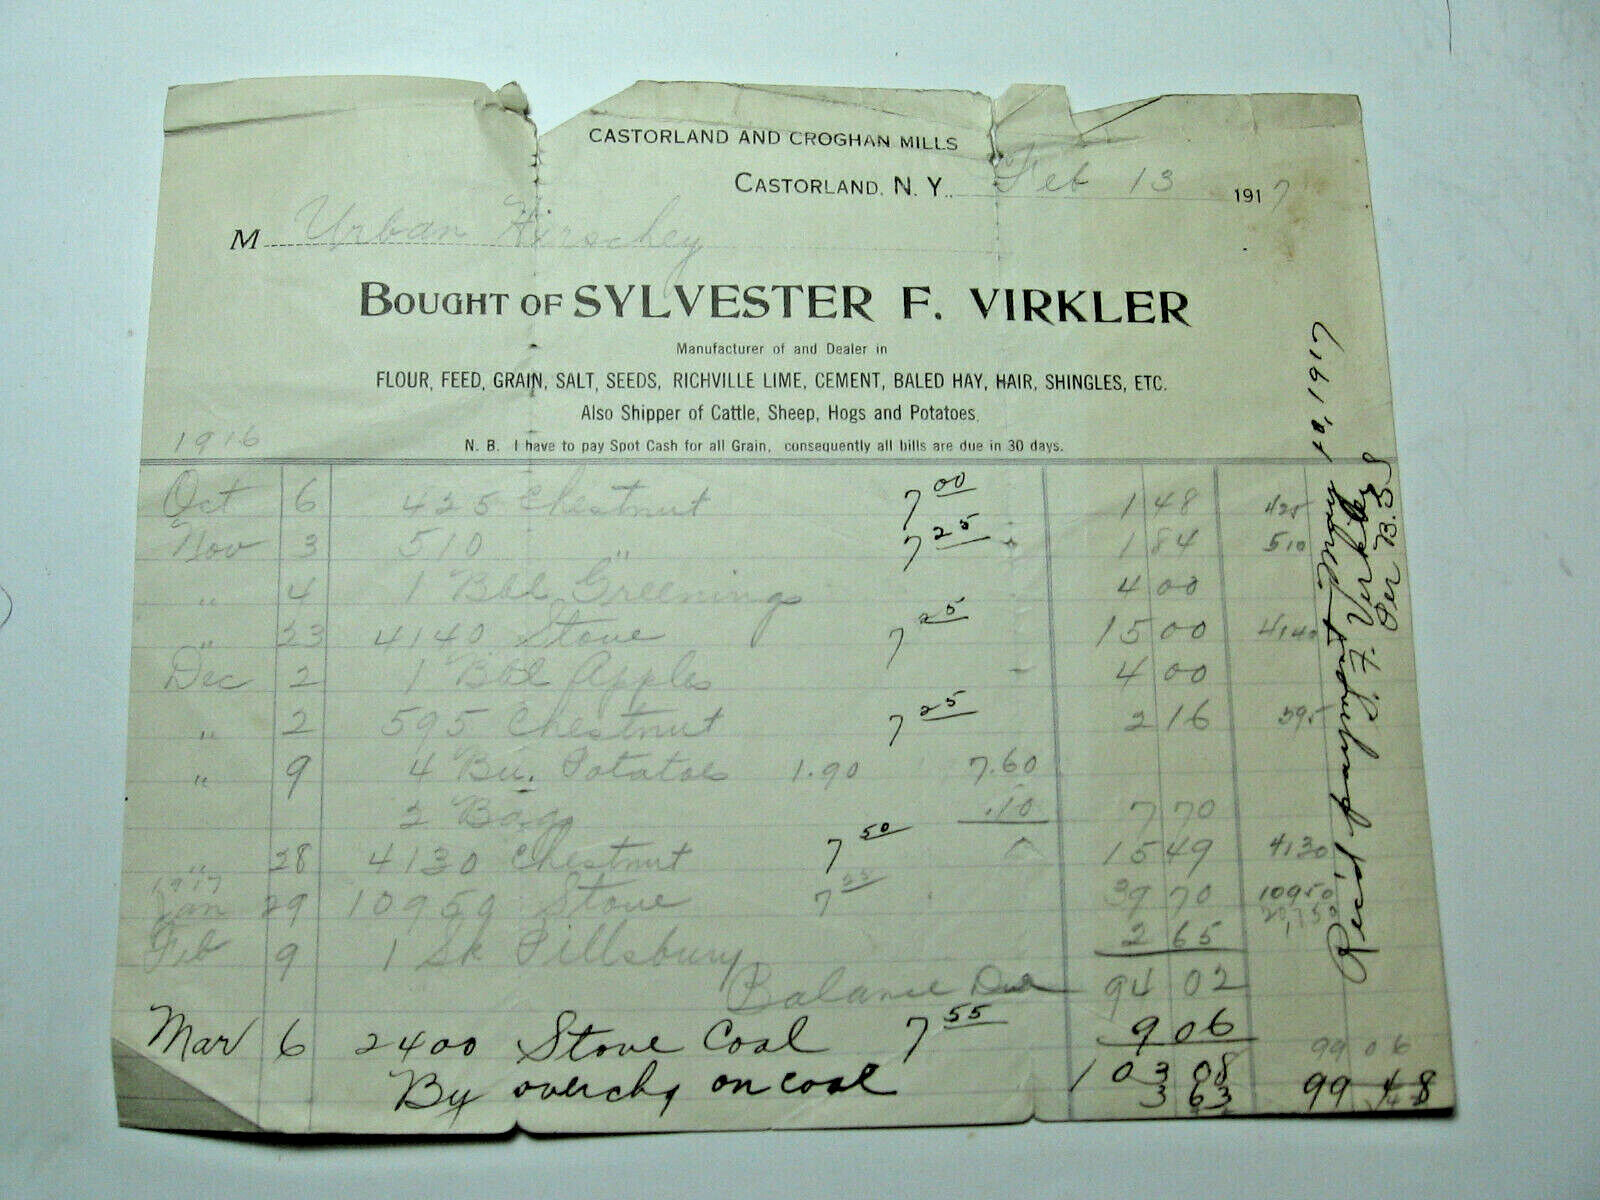 CASTORLAND AND CROGHAN MILLS
CASTORLAND, N. Y. Feb 13 1917
M Urban Hirschey
BOUGHT OF SYLVESTER F. VIRKLER
Manufacturer of and Dealer in
FLOUR, FEED, GRAIN, SALT, SEEDS, RICHVILLE LIME, CEMENT, BALED HAY, HAIR, SHINGLES, ETC.
Also Shipper of Cattle, Sheep, Hogs and Potatoes.
N. B. I have to pay Spot Cash for all Grain, consequently all bills are due in 30 days.
1916
Oct 6 425 Chestnut 7 00 1 48 425
Nov 3 510 " 7 25 1 84 510
" 4 1 Bbl Greenings 4 00
" 23 4140 Stove 7 25 15 00 4140
Dec 2 1 Bbl Apples 4 00
" 2 595 Chestnut 7 25 2 16 595
" 9 4 Bu. Potatoes 1.90 7.60
2 Bags .10 7 70
" 28 4130 Chestnut 7 50 15 49 4130
1917
Jan 29 10950 Stove 7 39 70 10950
20,750
Feb 9 1 Sk Pillsbury 2 65
Balance Due 94 02
Mar 6 2400 Stove Coal 7 55 9 06
99 06
103 08
By overchg on coal 3 63 99 48
Rec'd payment March 10, 1917
S. F. Virkler
Per B.S